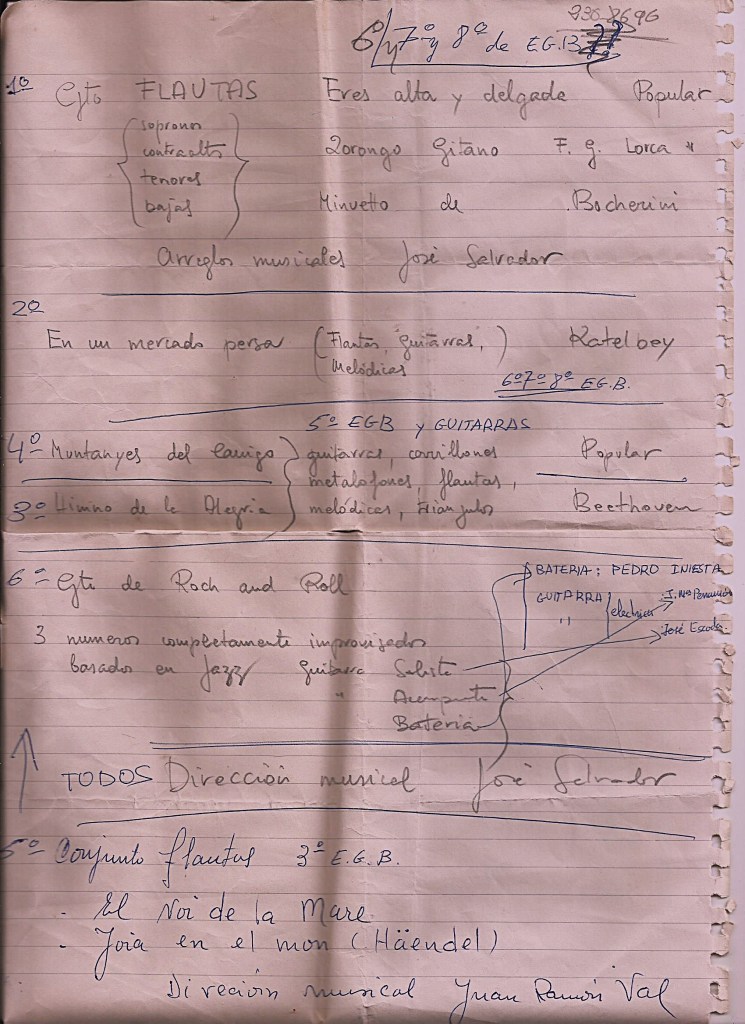 6º/y 7º y 8º de E.G.B
1º Cjto FLAUTAS Eres alta y delgada Popular
sopranos
contraaltos
tenores
bajas
Zorongo Gitano F. G. Lorca "
Minuetto de Bocherini
Arreglos musicales José Salvador
2º
En un mercado persa (Flautas, guitarras, melódicas) Katelbey
6º 7º 8º E.G.B.
5º EGB y GUITARRAS
4º Muntanyes del Canigo guitarras, carrillones Popular
metalofones, flautas,
3º Himno de la Alegria melódicas, triangulos Beethoven
6º Cjto de Roch and Roll
BATERIA: PEDRO INIESTA
GUITARRA electricas
"
José Escoda
3 numeros completamente improvisados
basados en Jazz guitarra Solista
" Acompañte
Bateria
TODOS Dirección musical José Salvador
5º Conjunto flautas 3º E.G.B.
- El Noi de la Mare
- Joia en el mon (Häendel)
Direción musical Juan Ramón Val